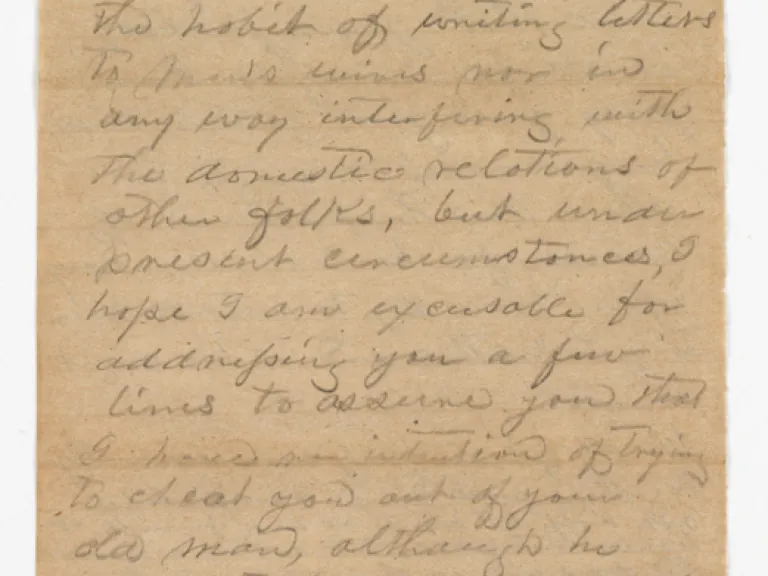 the habit of writing letters
to men's wives nor in
any way interfering with
the domestic relations of
other folks, but under
present circumstances, I
hope I am excusable for
addressing you a few
lines to assure you that
I have no intention of trying
to cheat you out of your
old man, although he